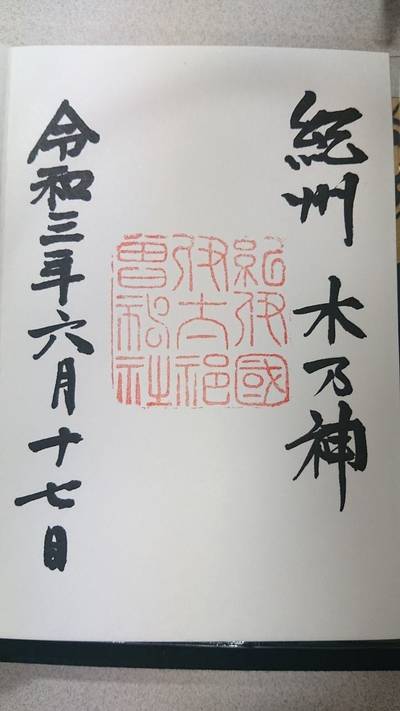 紀州 木乃神
紀伊國
伊太祁
曽神社
令和三年六月十七日